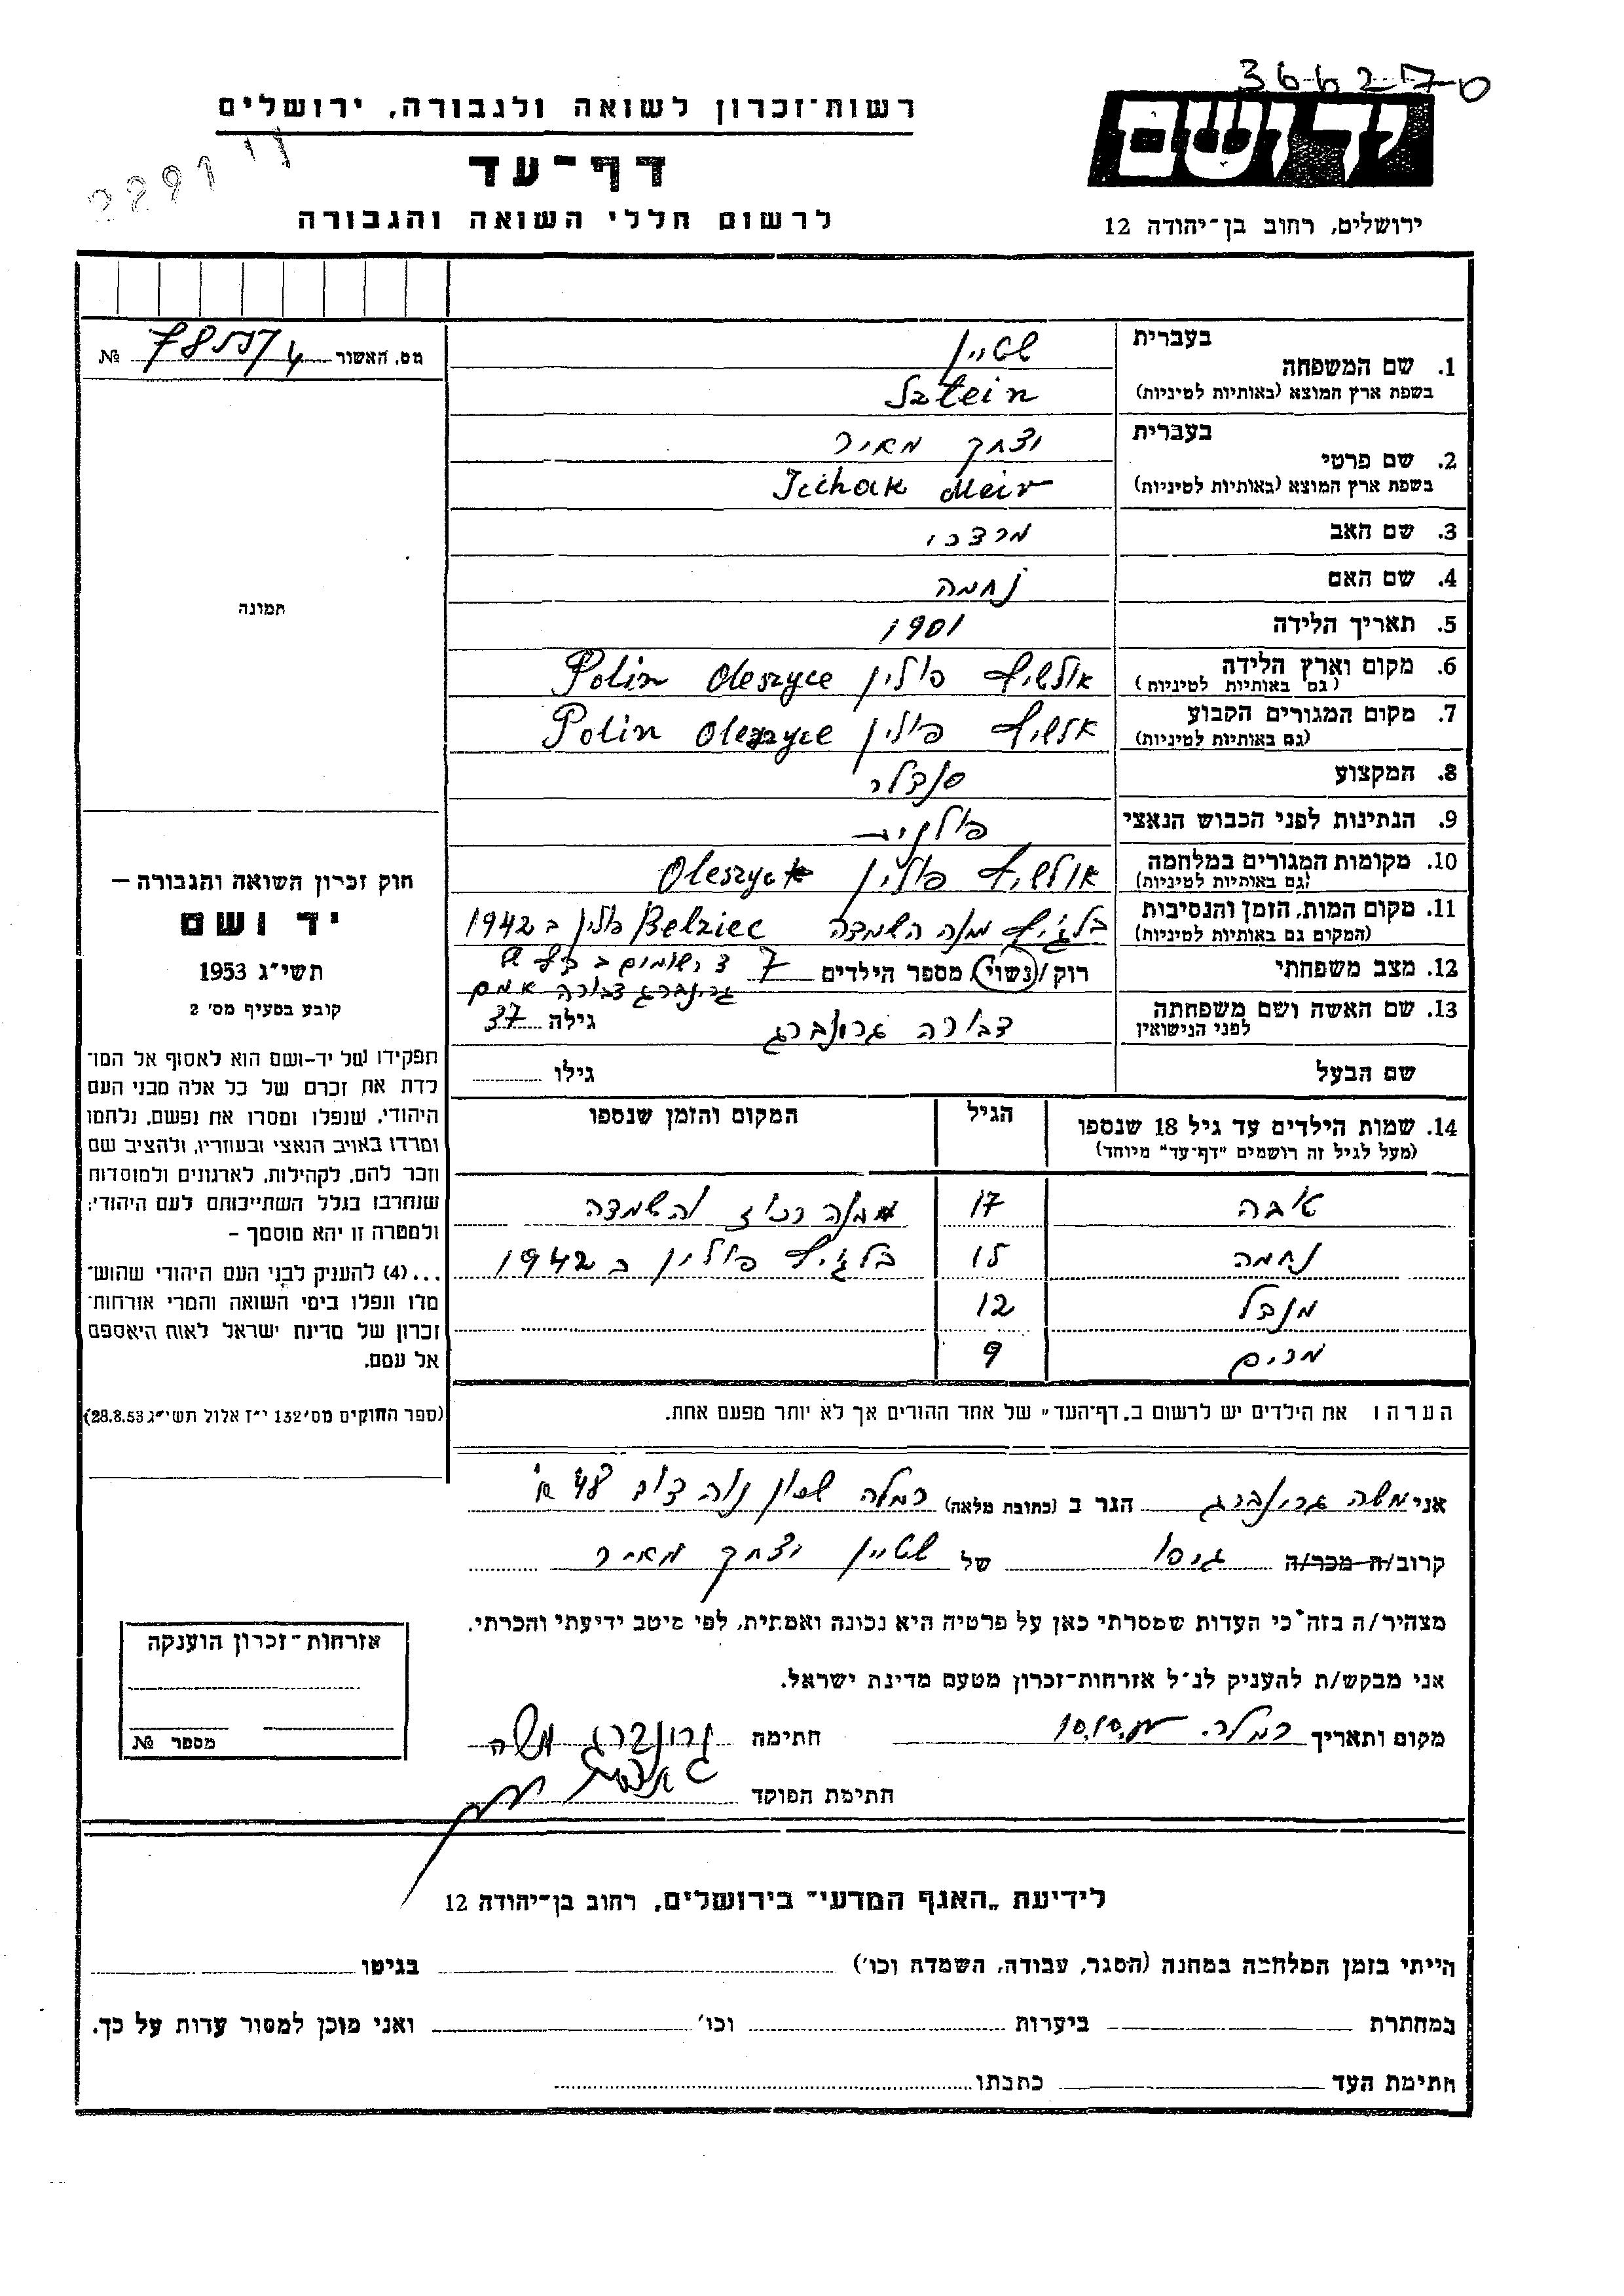 366270
רשות־זכרון לשואה ולגבורה, ירושלים
דף־עד
לרשום חללי השואה והגבורה
יד ושם
ירושלים, רחוב בן־יהודה 12
מס. האשור № 
1. שם המשפחה
בעברית שטיין
בשפת ארץ המוצא (באותיות לטיניות) Sztein
2. שם פרטי
בעברית יצחק מאיר
בשפת ארץ המוצא (באותיות לטיניות) Icihak Meir
3. שם האב מרדכי
4. שם האם נחמה
5. תאריך הלידה 1901
6. מקום וארץ הלידה אולשיץ פולין Oleszyce Polin
(גם באותיות לטיניות)
7. מקום המגורים הקבוע אלשיץ פולין Oleszyce Polin
(גם באותיות לטיניות)
8. המקצוע סנדלר
9. הנתינות לפני הכבוש הנאצי פולנית
10. מקומות המגורים במלחמה אולשיץ פולין
(גם באותיות לטיניות)
11. מקום המות, הזמן והנסיבות בלזיץ מחנה השמדה Belziec פולין ב 1942
(המקום גם באותיות לטיניות)
12. מצב משפחתי רוק/נשוי, מספר הילדים 7 3 רשומים ב
גרינברג דבורה אמם
13. שם האשה ושם משפחתה דבורה גרונברג גילה 37
לפני הנישואין
שם הבעל גילו
14. שמות הילדים עד גיל 18 שנספו הגיל המקום והזמן שנספו
(מעל לגיל זה רושמים "דף־עד" מיוחד)
17 מחנה רכוז והשמדה
נחמה 15 בלזיץ פולין ב 1942
מנדל 12
מרים 9
הערה: את הילדים יש לרשום ב„דף־העד" של אחד ההורים אך לא יותר מפעם אחת.
תמונה
חוק זכרון השואה והגבורה –
יד ושם
תשי״ג 1953
קובע בסעיף מס' 2
תפקידו של יד-ושם הוא לאסוף אל המו־
לדת את זכרם של כל אלה מבני העם
היהודי, שנפלו ומסרו את נפשם, נלחמו
ומרדו באויב הנאצי ובעוזריו, ולהציב שם
וזכר להם, לקהילות, לארגונים ולמוסדות
שנחרבו בגלל השתייכותם לעם היהודי;
ולמטרה זו יהא מוסמך –
...(4) להעניק לבני העם היהודי שהוש־
מדו ונפלו בימי השואה והמרי אזרחות־
זכרון של מדינת ישראל לאות היאספם
אל עמם.
(ספר החוקים מס' 132 י״ז אלול תשי״ג 28.8.53)
אני משה גרינברג הגר ב (כתובת מלאה) רמלה שכון נוה דוד 48 א'
קרוב/ה מכר/ה גיסו של שטיין יצחק מאיר
מצהיר/ה בזה כי העדות שמסרתי כאן על פרטיה היא נכונה ואמתית, לפי מיטב ידיעתי והכרתי.
אני מבקש/ת להעניק לנ״ל אזרחות־זכרון מטעם מדינת ישראל.
מקום ותאריך רמלה. חתימה גרונברג משה
חתימת הפוקד
אזרחות־זכרון הוענקה
מספר №
לידיעת „האגף המדעי" בירושלים, רחוב בן־יהודה 12
הייתי בזמן המלחמה במחנה (הסגר, עבודה, השמדה וכו') בגיטו
במחתרת ביערות וכו' ואני מוכן למסור עדות על כך.
חתימת העד כתבתו